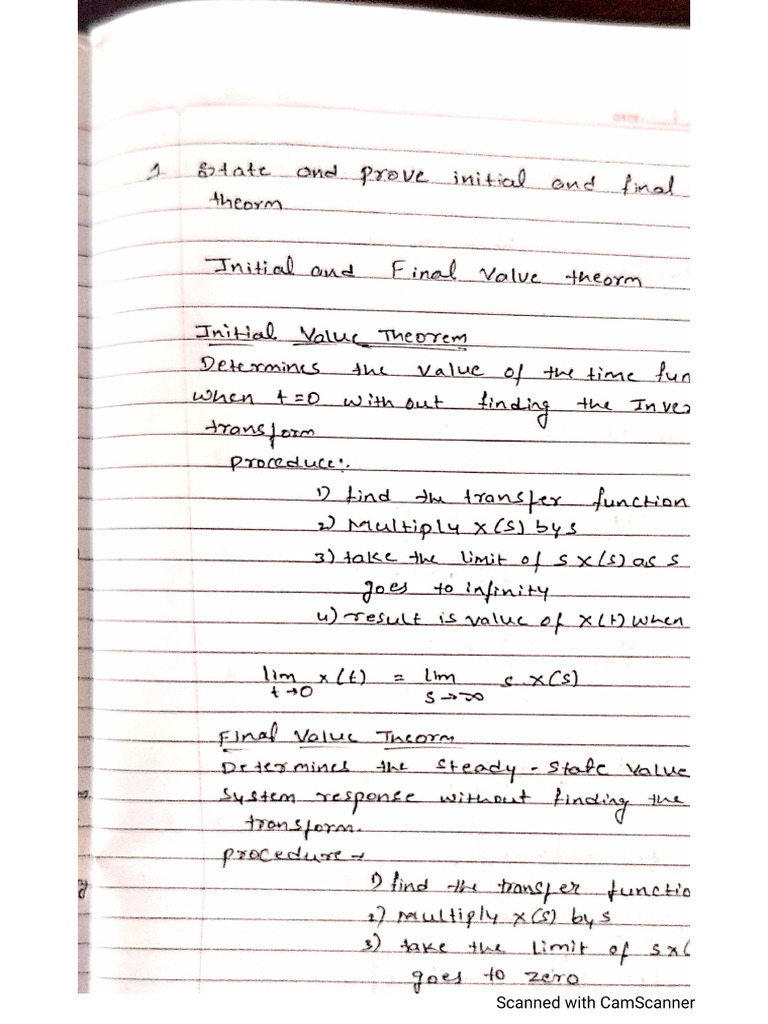 1 State and prove initial and final
theorm
Initial and Final Value theorm
Initial Value Theorem
Determines the value of the time fun
when t=0 with out finding the Inver
transform
proceduce:.
1) find the transfer function
2) Multiply X(S) by s
3) take the limit of S X(S) as S
goes to infinity
4) result is value of X(t) when
lim x(t) = lim s.X(S)
t→0 S→∞
Final Value Theorm
Determines the Steady-State Value
System response without finding the
transform.
procedure→
1) find the transfer functio
2) Multiply X(S) by S
3) take the limit of S X(
goes to zero
Scanned with CamScanner